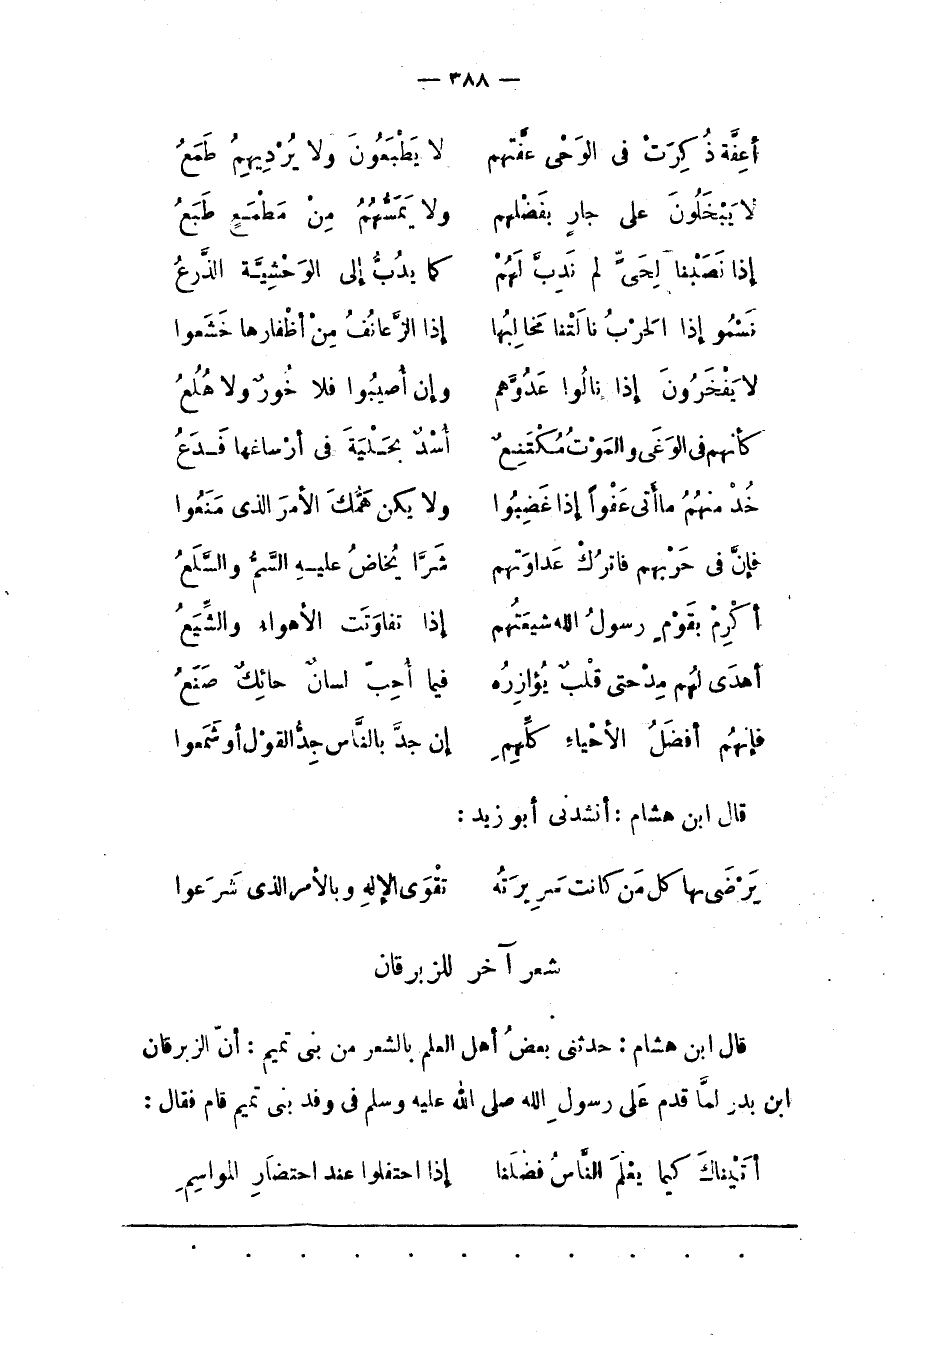 — ٣٨٨ —
أعِفَّة ذُكِرَتْ فى الوَحْى عفَّتهم لا يَطْبَعُونَ ولا يُرْدِيهِمُ طَمَعُ
لا يَبْخَلُونَ على جارٍ بفَضْلهم ولا يَمَسُّهُمُ مِنْ مَطْمَعٍ طَبَعُ
إذا نَصَبْنا لِحَىٍّ لم نَدِبَّ لَهُمْ كما يدُبُّ إلى الوَحْشِيَّة الذَّرِعُ
نَسْمُو إذا الحرْبُ نالَتْنا مَخالِبُها إذا الزَّعانُفُ مِنْ أظْفارها خَشَعوا
لا يَفْخَرُونَ إذا نالُوا عَدُوَّهم وإن أُصِيبُوا فلا خُورٌ ولا هُلُعُ
كأنهم فى الوَغَى والمَوْتُ مُكْتَنِعٌ أُسْدٌ بحَلْيَةَ فى أرْساغها فَدَعُ
خُذْ منهُمُ ما أَتى عَفْواً إذا غَضِبُوا ولا يكن هَمُّكَ الأمرَ الذى مَنَعُوا
فإنَّ فى حَرْبهم فاترُكْ عَداوَتهم شَرًّا يُخاضُ عليهِ السَّمُّ والسَّلَعُ
أكْرِمْ بقَوْمٍ رسولُ الله شيعَتُهم إذا تفاوَتَت الأهواء والشِّيَعُ
أهدَى لهَم مِدْحتى قلْبٌ يُؤازِرُه فيما أُحِبّ لسانٌ حائِكٌ صَنَعُ
فإنهُم أفضَلُ الأحْياءِ كلِّهِمِ إن جدَّ بالنَّاس جِدُّ القوْل أو شَمَعوا
قال ابن هشام : أنشدنى أبو زيد :
يَرْضَى بها كل مَن كانت سريرَتُه تقْوَى الإلهِ وبالأمر الذى شَرَعوا
شعر آخر للزبرقان
قال ابن هشام : حدثنى بعضُ أهل العلم بالشعر من بنى تميم : أنّ الزبرقان
ابن بدر لمَّا قدم عَلى رسولِ الله صلى الله عليه وسلم فى وفد بنى تميم قام فقال :
أتَيْناكَ كيما يعْلمَ النَّاسُ فضْلَنا إذا احتفلوا عند احتضَارِ المواسِمِ